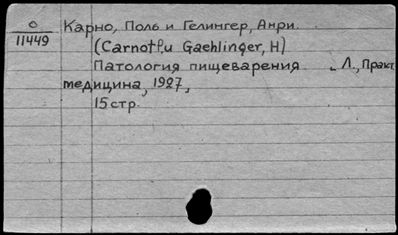 О
11449
Карно, Поль и Гелингер, Анри.
(Carnot P. и Gaehlinger, H)
Патология пищеварения . Л., Практ.
медицина, 1927,
15 стр.